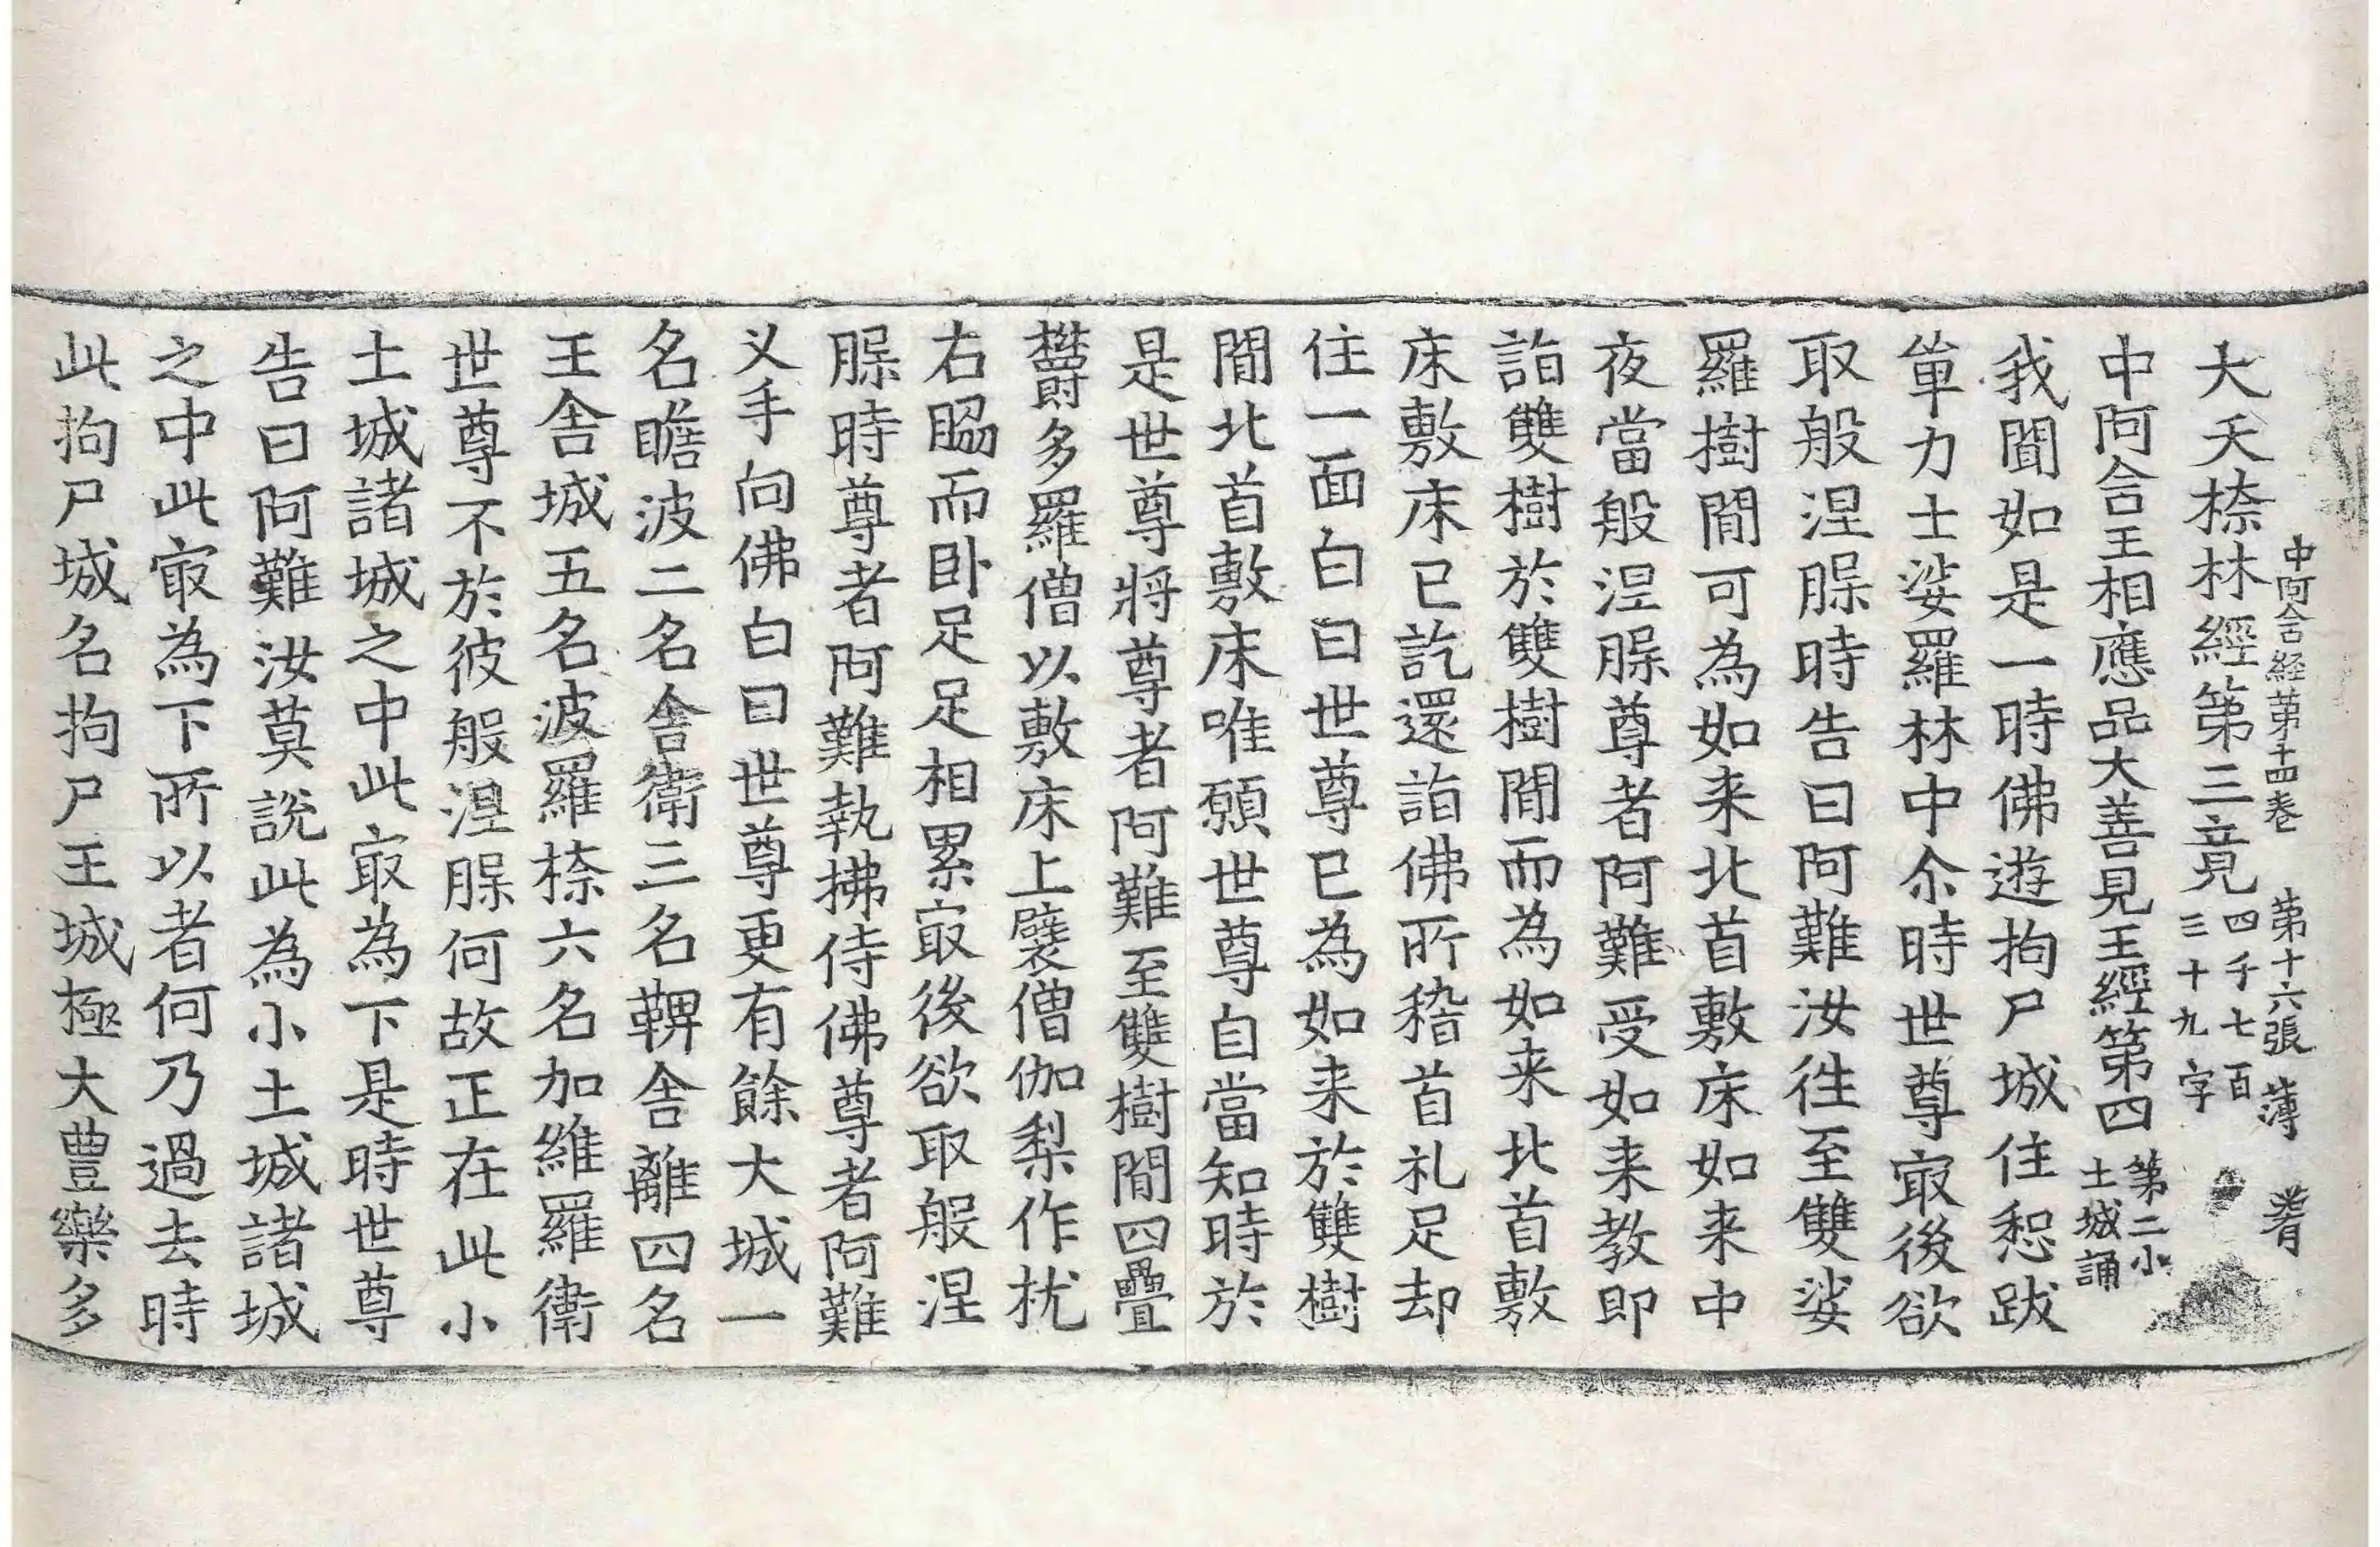 中阿含経第十四卷 第十六張 薄
大天㮈林經第三竟 四千七百三十九字
中阿含王相應品大善見王經第四 第二小土城誦
我聞如是一時佛遊拘尸城住惒跋
單力士娑羅林中尒時世尊㝡後欲
取般涅脲時告曰阿難汝徃至雙娑
羅樹閒可為如来北首敷床如来中
夜當般涅脲尊者阿難受如来教即
詣雙樹於雙樹閒而為如来北首敷
床敷床已訖還詣佛所稽首礼足却
住一面白曰世尊已為如来於雙樹
閒北首敷床唯願世尊自當知時於
是世尊將尊者阿難至雙樹閒四疊
欝多羅僧以敷床上襞僧伽梨作枕
右脇而卧足足相累㝡後欲取般涅
脲時尊者阿難執拂侍佛尊者阿難
叉手向佛白曰世尊更有餘大城一
名瞻波二名舎衛三名鞞舎離四名
王舎城五名波羅㮈六名加維羅衛
世尊不於彼般涅脲何故正在此小
土城諸城之中此㝡為下是時世尊
告曰阿難汝莫說此為小土城諸城
之中此㝡為下所以者何乃過去時
此拘尸城名拘尸王城極大豊樂多